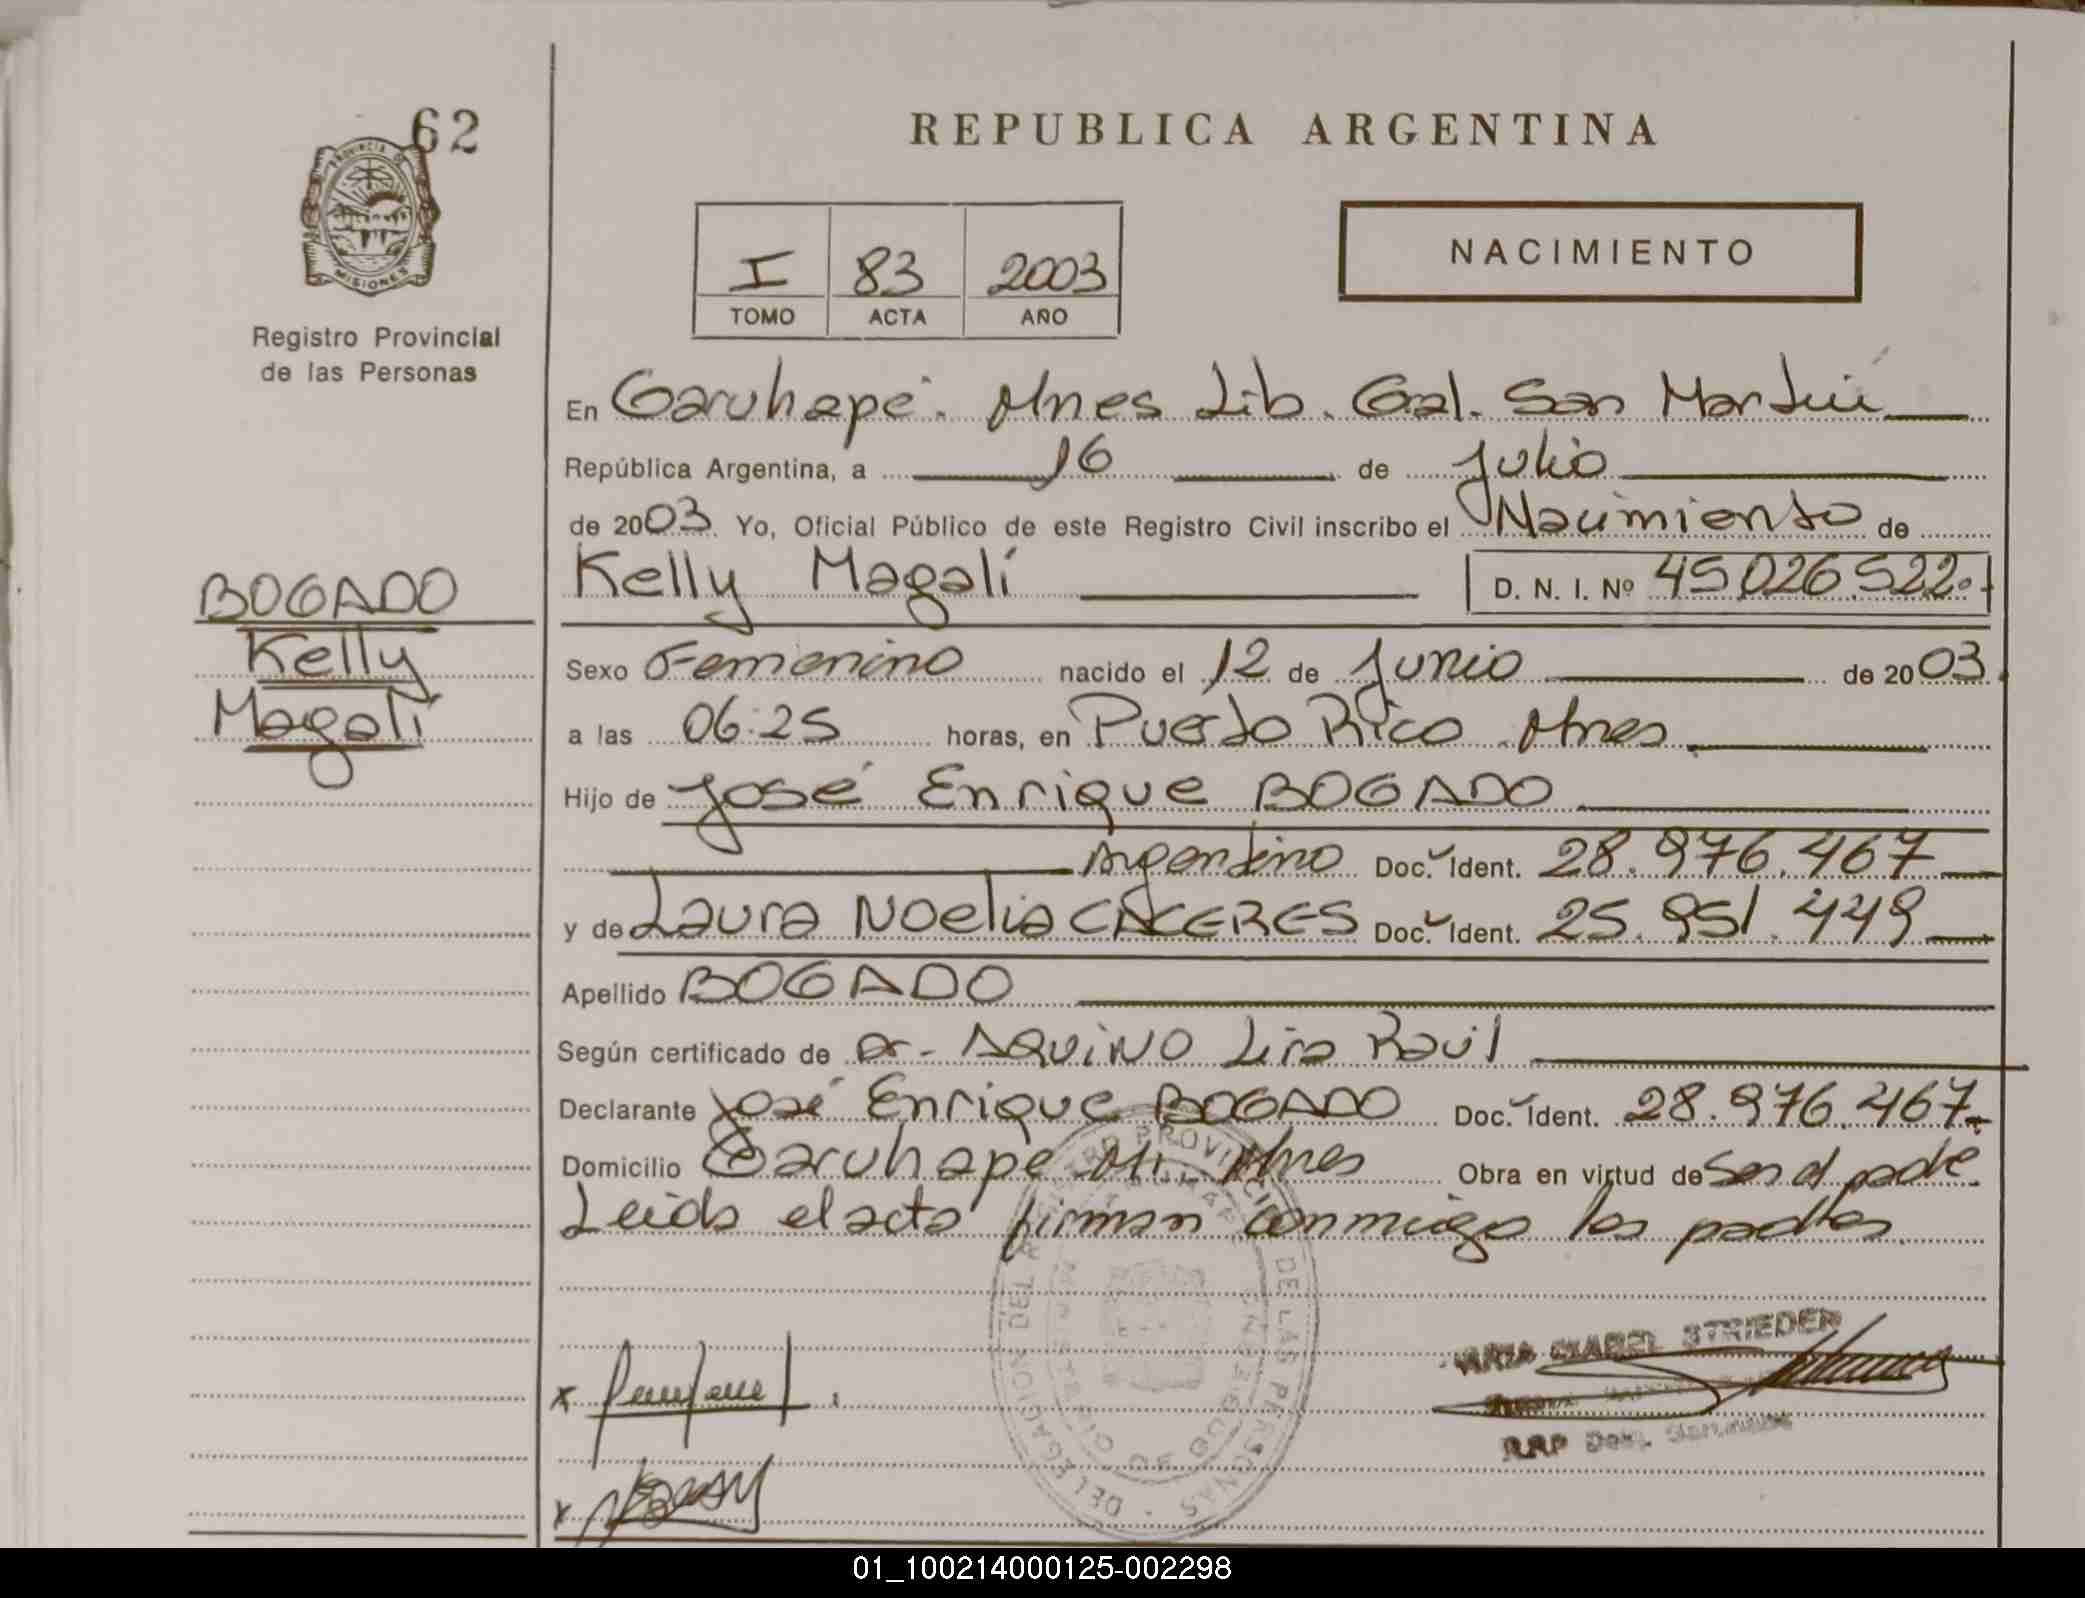 62
PROVINCIA DE
MISIONES
Registro Provincial
de las Personas
REPUBLICA ARGENTINA
I 83 2003
TOMO ACTA AÑO
NACIMIENTO
En Garuhapé. Mnes Lib. Gral. San Martín
República Argentina, a 16 de Julio
de 2003. Yo, Oficial Público de este Registro Civil inscribo el Nacimiento de
Kelly Magalí D. N. I. Nº 45.026.522.
BOGADO
Kelly
Magalí
Sexo Femenino nacido el 12 de Junio de 2003.
a las 06:25 horas, en Puerto Rico Mnes.
Hijo de José Enrique BOGADO
Argentino Doc. Ident. 28.976.467
y de Laura Noelia CÁCERES Doc. Ident. 25.951.449
Apellido BOGADO
Según certificado de Dr. AQUINO Lira Raúl
Declarante José Enrique BOGADO Doc. Ident. 28.976.467.
Domicilio Garuhapé Mí Mnes Obra en virtud de Ser el padre.
Leída el acta firman conmigo los padres.
DELEGACION DEL REGISTRO PROVINCIAL DE LAS PERSONAS
STRIEDER
x
x
01_100214000125-002298